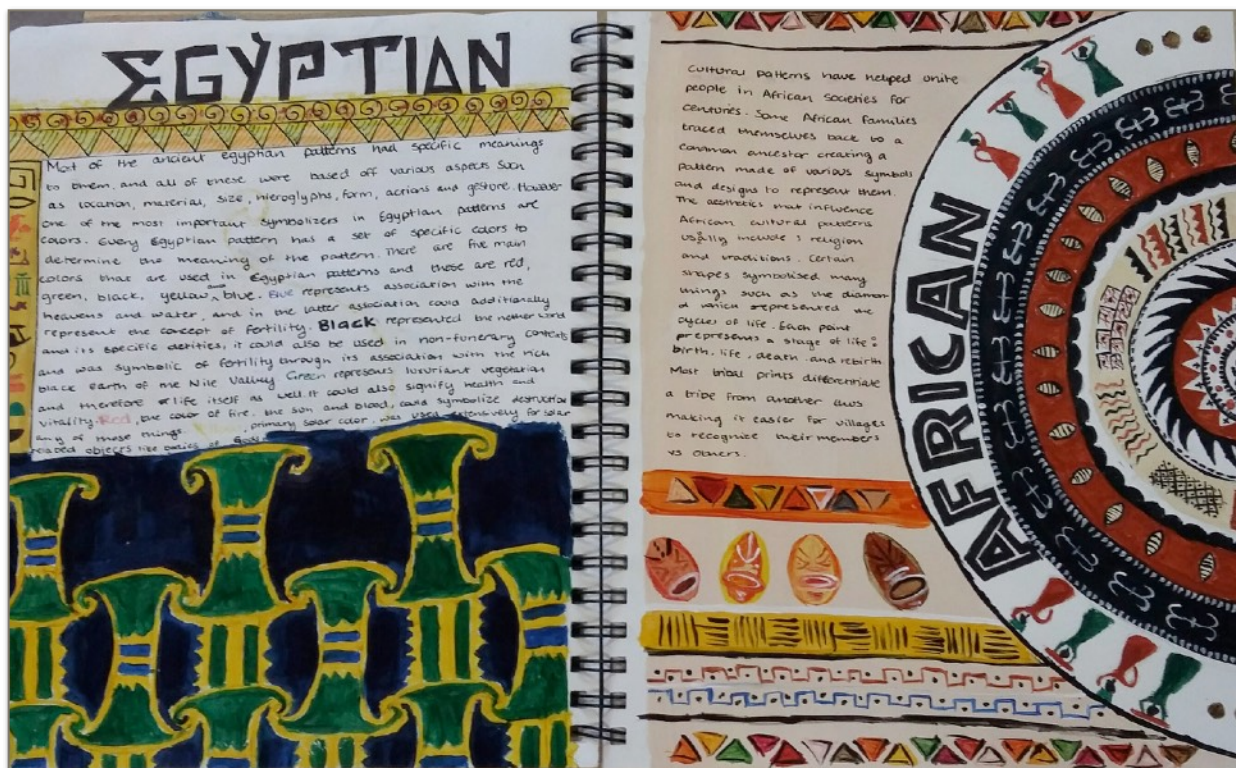 EGYPTIAN
Most of the ancient egyptian patterns had specific meanings
to them, and all of these were based off various aspects such
as location, material, size, hieroglyphs, form, actions and gesture. However
one of the most important symbolizers in Egyptian patterns are
colors. Every Egyptian pattern has a set of specific colors to
determine the meaning of the pattern. There are five main
colors that are used in Egyptian patterns and those are red,
green, black, yellow and blue. Blue represents association with the
heavens and water, and in the latter association could additionally
represent the concept of fertility. Black represented the nether world
and its specific deities, it could also be used in non-funerary contexts
and was symbolic of fertility through its association with the rich
black earth of the Nile Valley Green represents luxuriant vegetation
and therefore life itself as well. It could also signify health and
vitality. Red, the color of fire, the sun and blood, could symbolize destruction
any of those things. primary solar color, was used extensively for solar
related objects like of Gods
Cultural patterns have helped unite
people in African societies for
centuries. Some African families
traced themselves back to a
common ancestor creating a
pattern made of various symbols
and designs to represent them.
The aesthetics that influence
African cultural patterns
usually include : religion
and traditions. Certain
shapes symbolised many
things such as the diamond
which represented the
cycles of life. Each point
represents a stage of life :
birth, life, death and rebirth
Most tribal prints differentiate
a tribe from another thus
making it easier for villages
to recognize their members
vs others.
AFRICAN